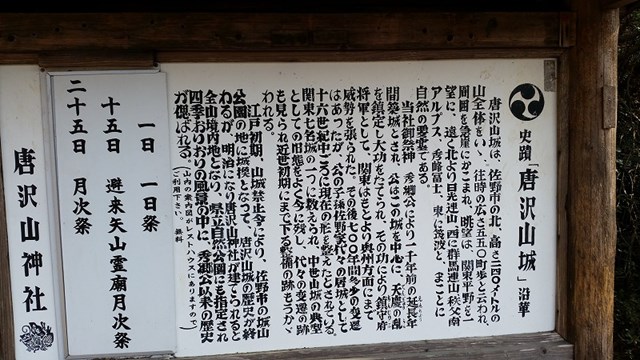 史蹟「唐沢山城」沿革
唐沢山は、佐野市の北、高さ二四〇メートルの
山全体をいゝ、往時の広さ五五〇町歩と云われ、
周囲を急崖にかこまれ、眺望は、関東平野を一
望に、遠く北より日光連山、西に群馬連山秩父南
アルプス、秀峰富士、東に筑波と、まことに
自然の要塞である。
当社御祭神、秀郷公により一千年前の延長年
間築城とされ、公はこの城を中心に、天慶の乱
を鎮定し大功をたてられ、その功により鎮守府
将軍として、関東はもとより奥州方面にまで
威勢を張られた。その後七〇〇年間多少の変遷
はあつたが、公の子孫佐野家代々の居城として
十六世紀中ごろに現在の形を整えたとされている。
関東七名城の一つに数えられ、中世山城の典型
としての旧態をよく今に残し、代々の変遷の跡
も見られ近世初期にまで下る修補の跡もうかゞ
われる。
江戸初期、山城禁止令により、佐野市の城山
公園の地に城換となつて、唐沢山城の歴史が終
わるが、明治になり唐沢山神社が建てられると
全山境内地となり、県立自然公園にも指定され
四季おりおりの風景の中に、秀郷公以来の歴史
が偲ばれる。(山内の案内図がレストハウスにありますので)
ご利用下さい。無料
一日 一日祭
十五日 避来矢山霊廟月次祭
二十五日 月次祭
唐沢山神社